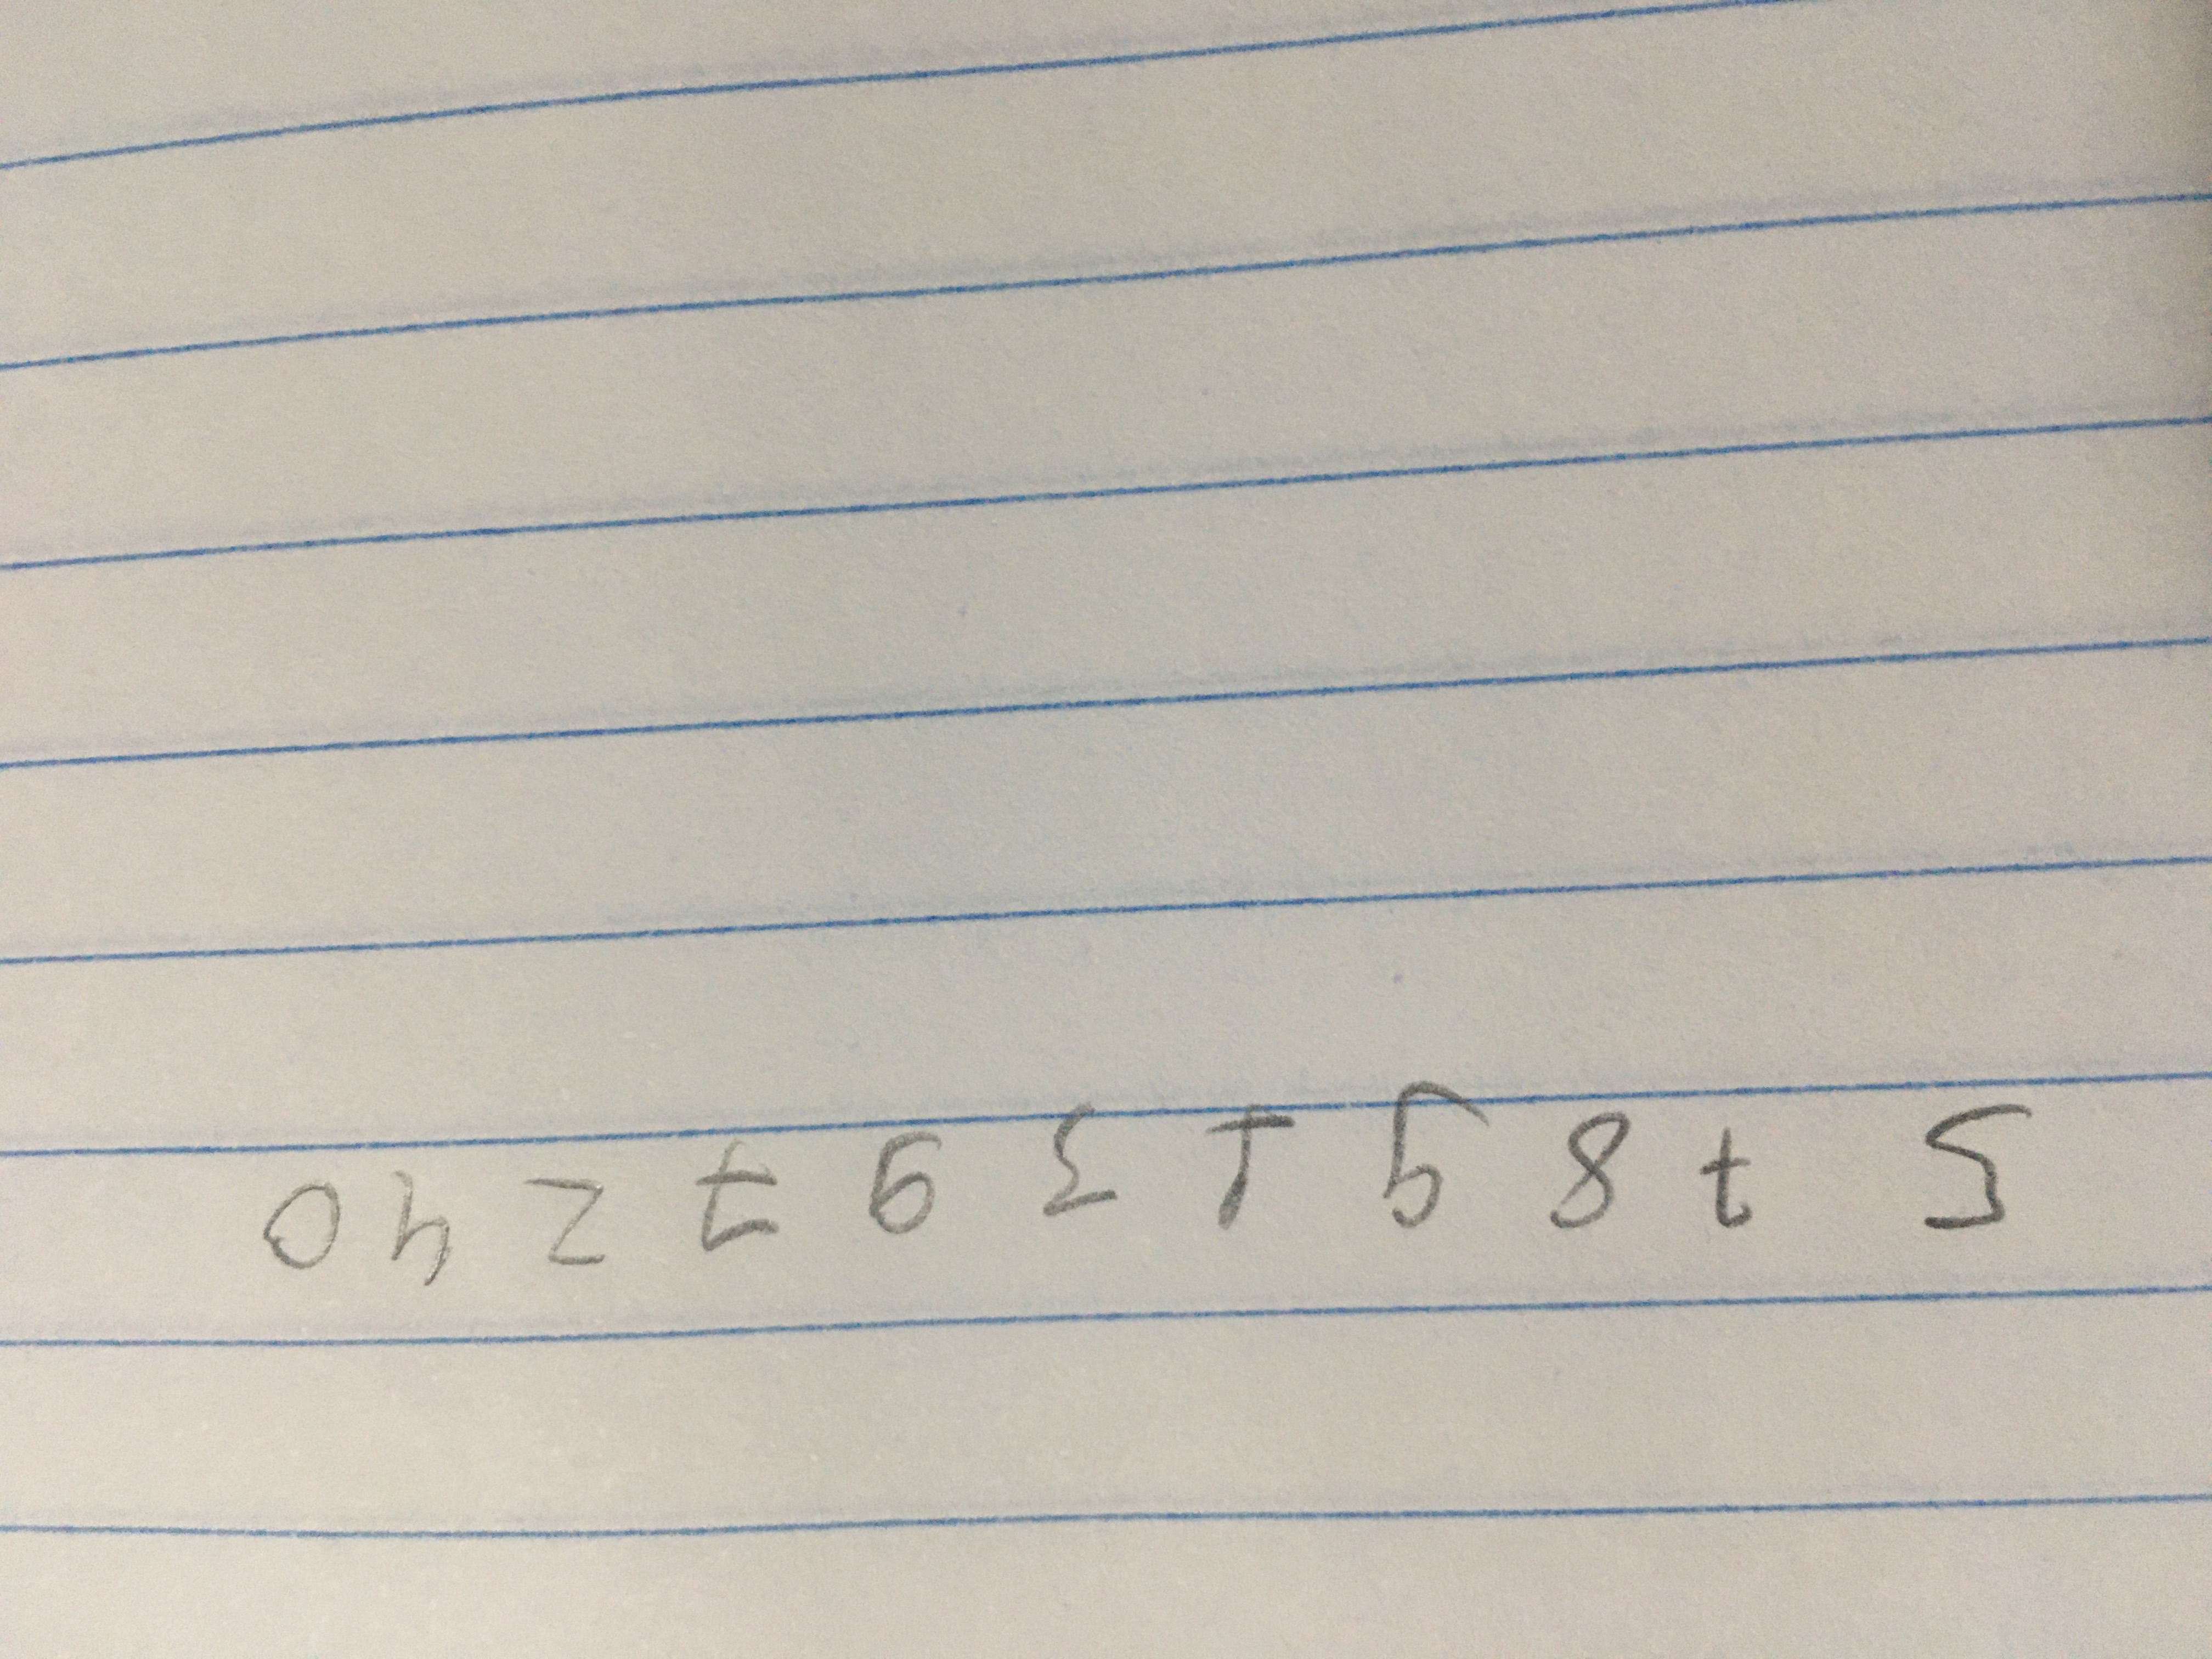 5 7 8 9 1 3 9 7 2 4 0